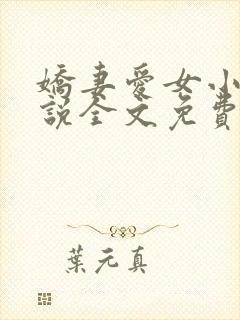 嬌妻愛女小
說全文免費
葉元真